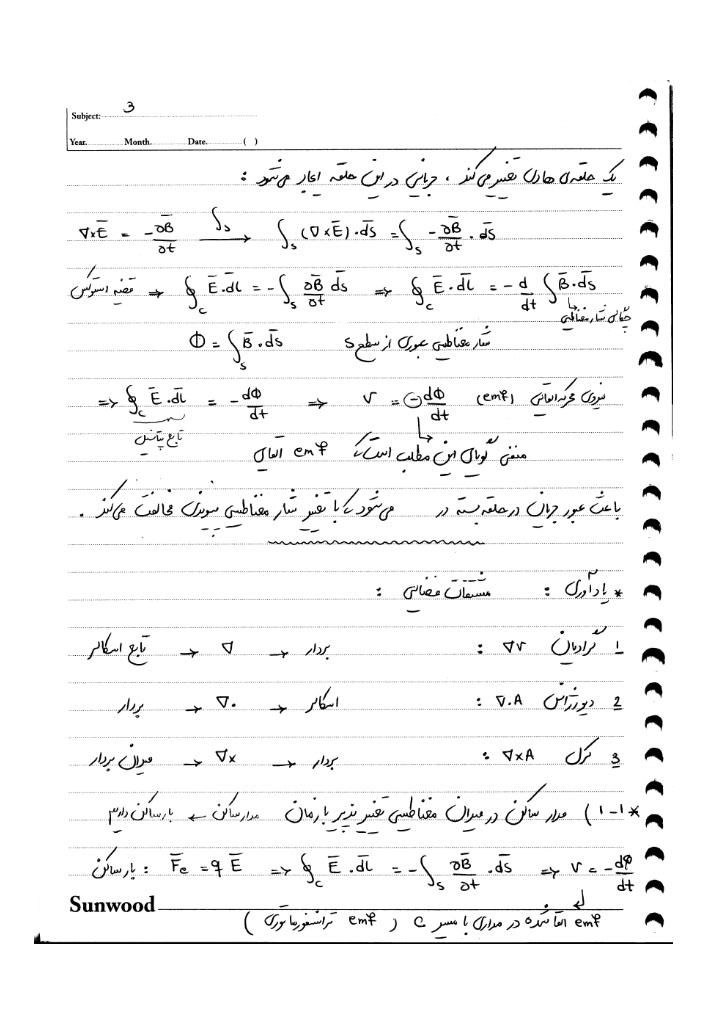 Subject: 3
Year. Month. Date. ( )
یک حلقه‌ی هادی تغییر می‌کند ، جریانی در این حلقه ایجاد می‌شود :
∇×E̅ = -∂B̅/∂t ⟶ ∫s ∫s (∇×E̅)·d̅s̅ = ∫s -∂B̅/∂t · d̅s̅
قضیه استوکس ⇒ ∮c E̅·d̅l̅ = -∫s ∂B̅/∂t d̅s̅ ⇒ ∮c E̅·d̅l̅ = -d/dt ∫ B̅·d̅s̅
چگالی شار مغناطیسی
Φ = ∫s B̅·d̅s̅ شار مغناطیسی عبوری از سطح S
⇒ ∮c E̅·d̅l̅ = -dΦ/dt ⇒ V = -dΦ/dt (emf) نیروی محرکه القایی
تابع پتانسیل
منفی گویای این مطلب است که emf القای
باعث عبور جریان در حلقه بسته در می‌شود که با تغییر شار مغناطیسی پیوندی مخالفت می‌کند .
* یادآوری : مشتقات فضایی :
1 گرادیان ∇V : بردار → ∇ → تابع اسکالر
2 دیورژانس ∇.A : اسکالر → ∇. → بردار
3 کرل ∇×A : بردار → ∇× → میدان بردار
*۱-۱ ) مدار ساکن در میدان مغناطیسی تغییر پذیر با زمان مدار ساکن ← بار ساکن داریم
بار ساکن : F̅e = q E̅ ⇒ ∮c E̅·d̅l̅ = -∫s ∂B̅/∂t · d̅s̅ ⇒ V = -dφ/dt
Sunwood
emf القا شده در مداری با مسیر C ( emf ترانسفورماتوری )